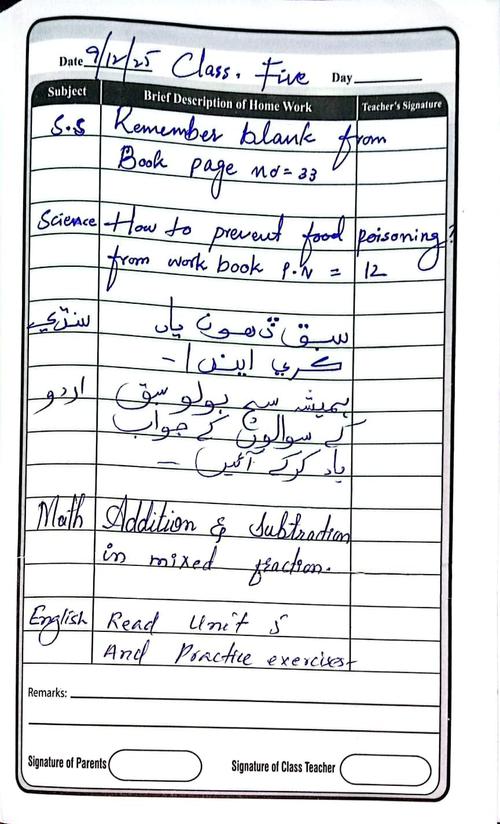 Date 9/12/25 Class. Five Day
Subject Brief Description of Home Work Teacher's Signature
S.S Remember blank from
Book page no = 33
Science How to prevent food poisoning?
from work book P.N = 12
سنڌي سبق ٿيون ياد
ڪري ايندا -
اردو ہمیشہ سچ بولو سبق
کے سوالوں کے جواب
یاد کرکے آئیں -
Math Addition & Subtraction
in mixed fraction.
English Read Unit 5
And Practice exercises
Remarks:
Signature of Parents Signature of Class Teacher